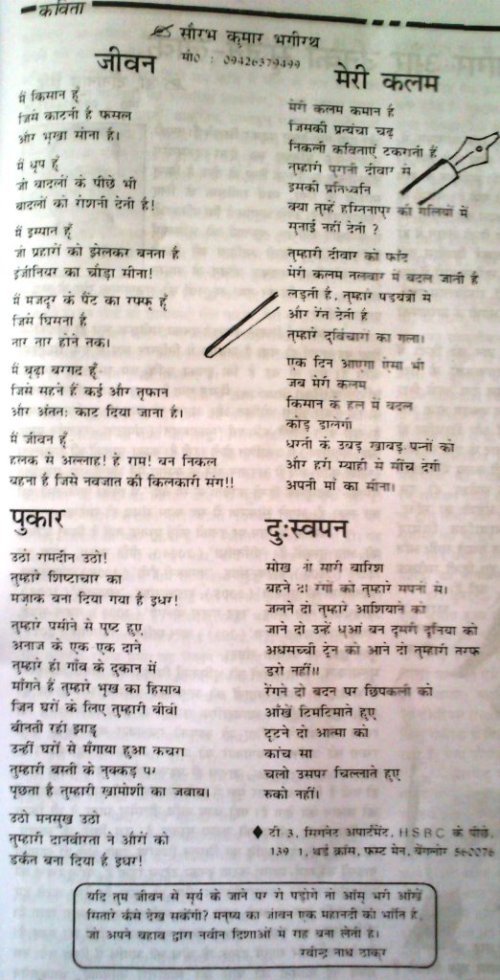 कविता
सौरभ कुमार भगीरथ
मो0 : 09426379499
जीवन
मैं किसान हूँ
जिसे काटनी है फसल
और भूखा सोना है।
मैं धूप हूँ
जो बादलों के पीछे भी
बादलों को रोशनी देती है!
मैं इस्पात हूँ
जो प्रहारों को झेलकर बनता है
इंजीनियर का चौड़ा सीना!
मैं मजदूर के पैंट का रफ्फू हूँ
जिसे घिसना है
तार तार होने तक।
मैं बूढ़ा बरगद हूँ
जिसे सहने हैं कई और तूफान
और अंततः काट दिया जाना है।
मैं जीवन हूँ
हलक से अल्लाह! हे राम! बन निकल
बहना है जिसे नवजात की किलकारी संग!!
पुकार
उठो रामदीन उठो!
तुम्हारे शिष्टाचार का
मज़ाक बना दिया गया है इधर!
तुम्हारे पसीने से पुष्ट हुए
अनाज के एक एक दाने
तुम्हारे ही गाँव के दुकान में
माँगते हैं तुम्हारे भूख का हिसाब
जिन घरों के लिए तुम्हारी बीवी
बीनती रही झाड़ू
उन्हीं घरों से मँगाया हुआ कचरा
तुम्हारी बस्ती के नुक्कड़ पर
पूछता है तुम्हारी खामोशी का जवाब।
उठो मनसुख उठो
तुम्हारी दानवीरता ने औरों को
डकैत बना दिया है इधर!
मेरी कलम
मेरी कलम कमान है
जिसकी प्रत्यंचा चढ़
निकली कविताएं टकराती हैं
तुम्हारी पुरानी दीवार से
इसकी प्रतिध्वनि
क्या तुम्हें हस्तिनापुर की गलियों में
सुनाई नहीं देती ?
तुम्हारी दीवार को फाँद
मेरी कलम तलवार में बदल जाती है
लड़ती है, तुम्हारे षडयंत्रों से
और रेत देती है
तुम्हारे दुर्विचारों का गला।
एक दिन आएगा ऐसा भी
जब मेरी कलम
किसान के हल में बदल
कोड़ डालेगी
धरती के उबड़ खाबड़ पन्नों को
और हरी स्याही से सींच देगी
अपनी माँ का सीना।
दुःस्वपन
सोख लो सारी बारिश
बहने दो रंगों को तुम्हारे सपनों से।
जलने दो तुम्हारे आशियाने को
जाने दो उन्हें धुआं बन दूसरी दुनिया को
अधमच्ची ट्रेन को आने दो तुम्हारी तरफ
डरो नहीं॥
रेंगने दो बदन पर छिपकली को
आँखें टिमटिमाते हुए
टूटने दो आत्मा को
कांच सा
चलो उसपर चिल्लाते हुए
रुको नहीं।
♦ टी 3, सिगनेट अपार्टमेंट, HSBC के पीछे,
139/1, थर्ड क्रॉस, फर्स्ट मेन, बेंगलोर 560076
यदि तुम जीवन से सूर्य के जाने पर रो पड़ोगे तो आँसू भरी आँखें
सितारे कैसे देख सकेंगी? मनुष्य का जीवन एक महानदी की भाँति है,
जो अपने बहाव द्वारा नवीन दिशाओं में राह बना लेती है।
रवीन्द्र नाथ ठाकुर